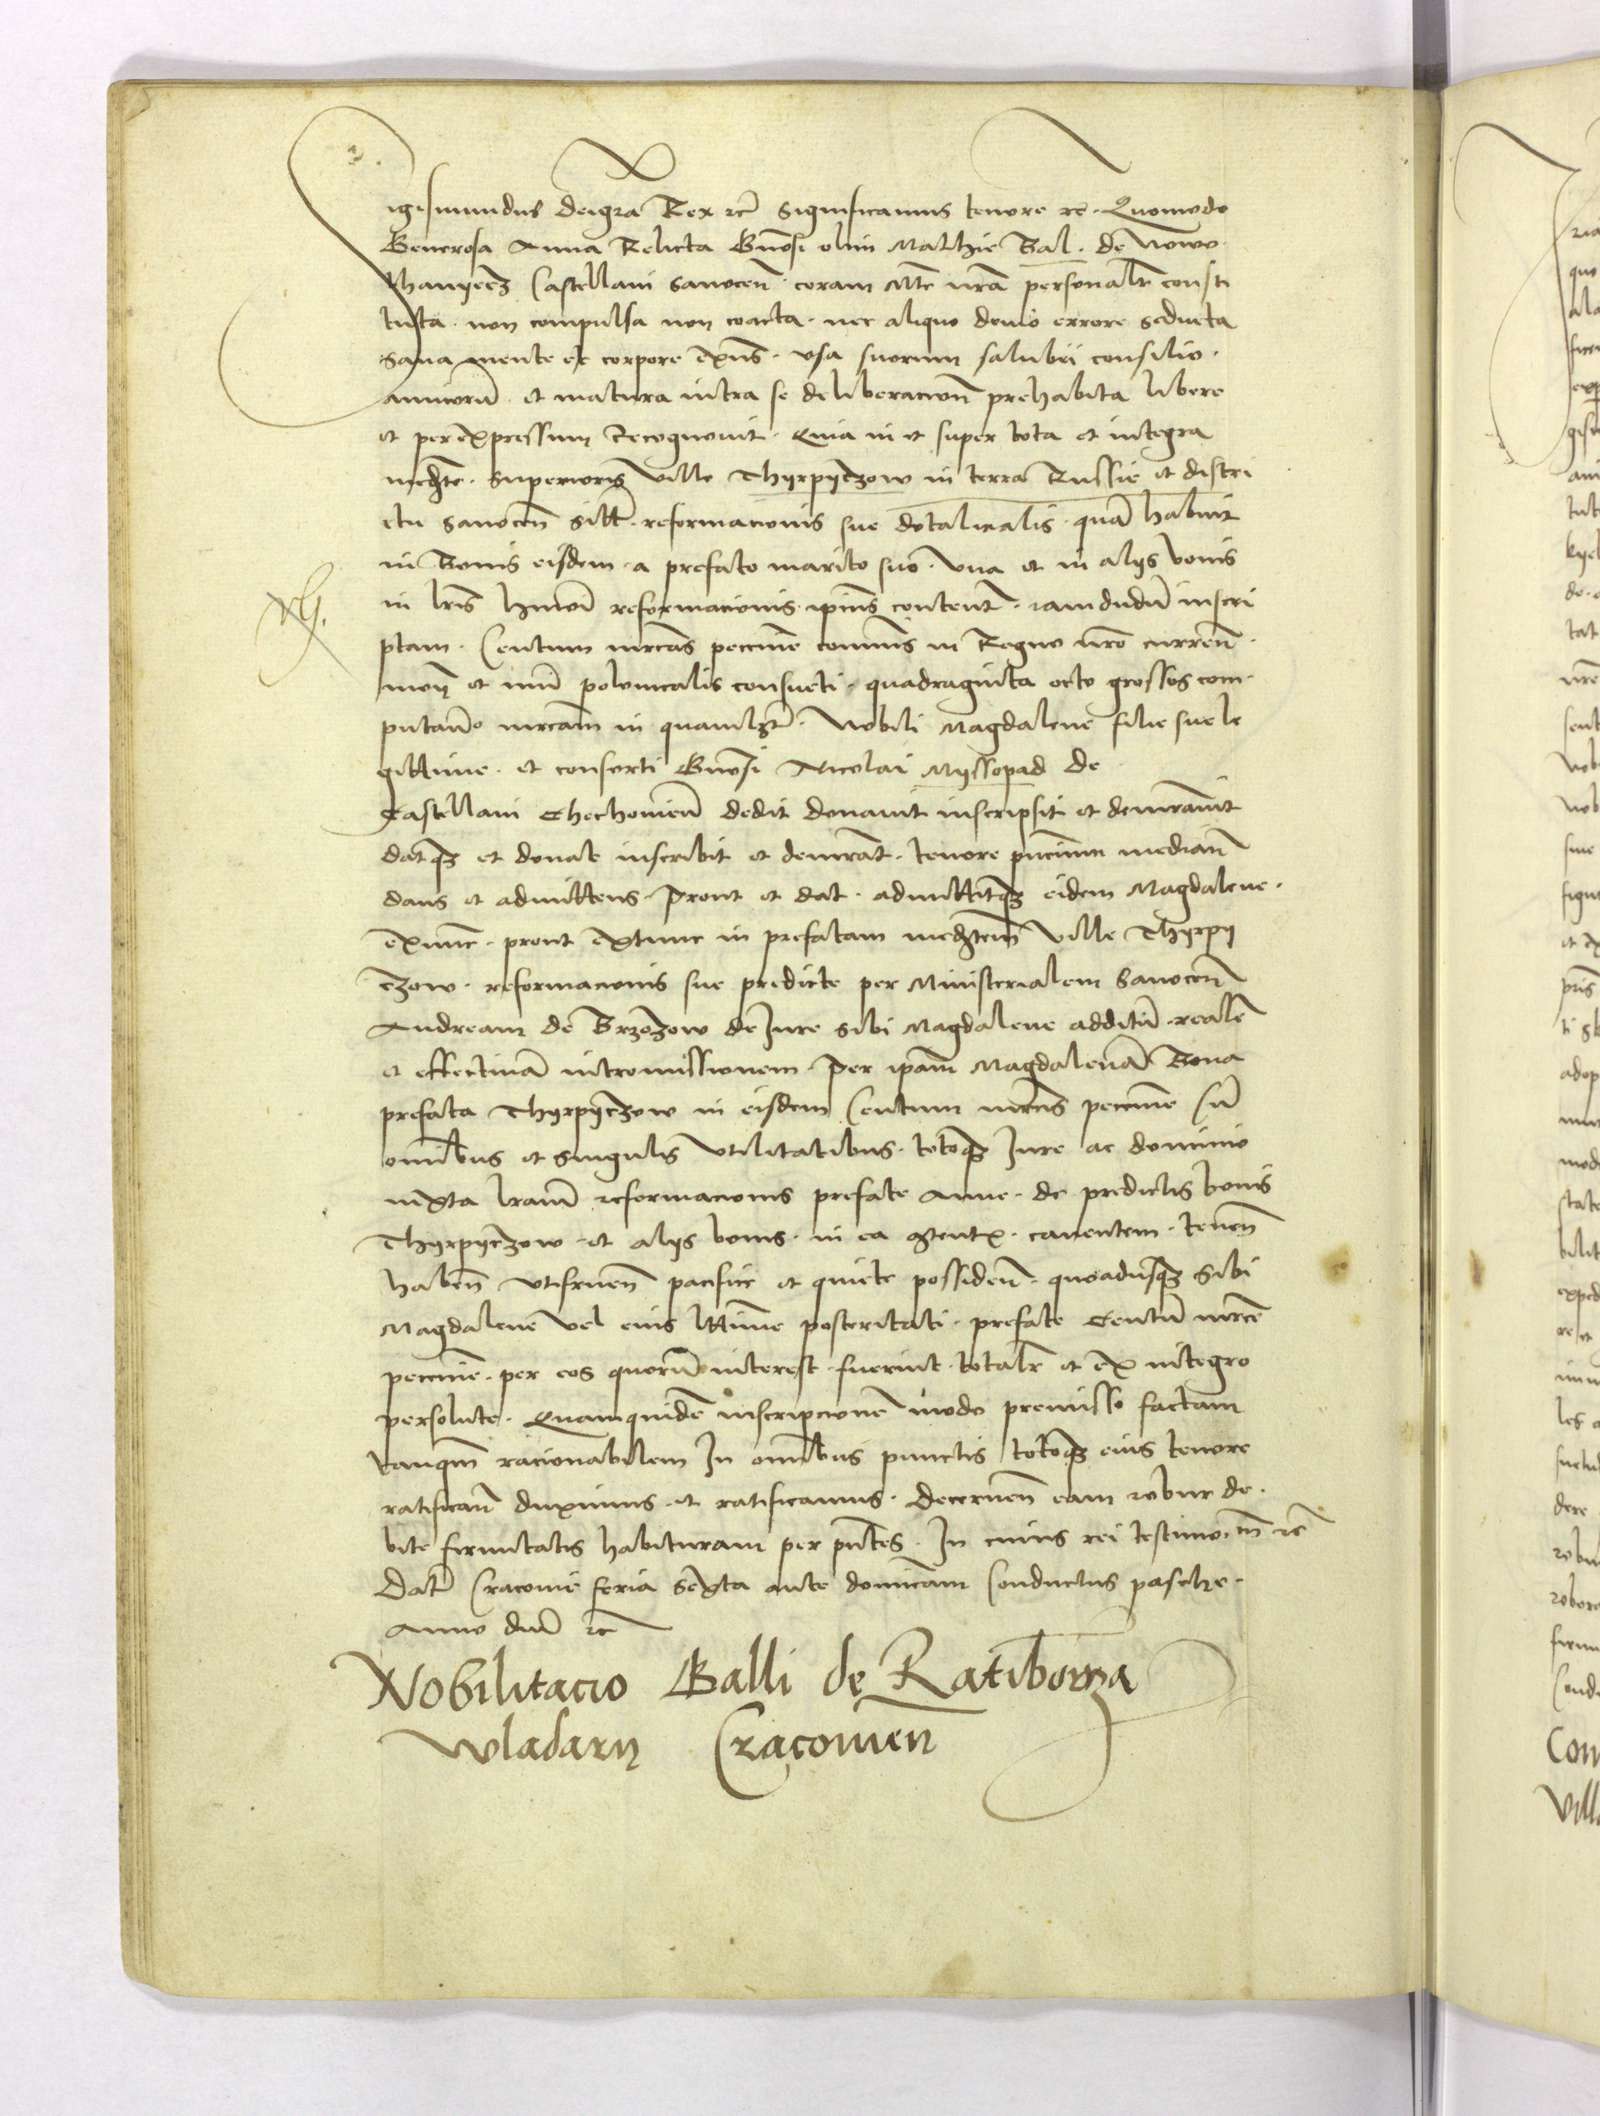 igismundus deigra Rex rcͣ Significamus tenore rc. Quomodo
Generosa Anna Relicta Gnosi olim Mathie Bal. de Nowo
thanyecz Castellani Sanocen̄ coram Mte nrā personalr̄ consti
tuta. non compulsa non coacta. nec aliquo devio errore seducta
Sana mente et corpore exn̄s. Usa suorum salubri consilio.
amicorū. et matura intra se deliberacion̄ prehabita libere
et per expressum Recognovit. Quia in et super tota et integra
med̄te. superioris ville Thyrpyczow in terra Russie et distri
ctu Sanocen̄ Sitt̄. reformacionis sue dotalicialis. quā habuit
in Bonis eisdem a prefato marito suo. Una et in alys bonis
in lr̄is hmōi reformacionis ipīus content̄. iamdudū inscri
ptam. Centum mr̄cas peccunie coīmūis in Regno nr̄o curren̄.
mon̄ et nūi polonicalis consueti. quadraginta octo grossos com
putan̄o mr̄cam in quamlʒt̄. Nobili Magdalene filie sue le
gittime. et consorti Gnosi Nicolai Myssopad de
Castellani Chechovien̄ dedit donavit inscripsit et demr̄avit
datqʒ et donat inscribit et demr̄at. tenore pn̄cium median̄
dans et admittens. Prout et dat. admittitqʒ eidem Magdalene.
exnunc. prout extunc in prefatam med̄tem ville Thyrpy
czow. reformacionis sue predicte per Ministerialem Sanocen̄
Andream de Brzozow de Jure sibi Magdalene additū. realē
et effectivā intromissionem. Per ipām Magdalenā Bona
prefata Thyrpyczow in eisdem Centum mr̄cis peccunie cū
om̄ibus et singulis utilitatibus. totoqʒ Jure ac dominio
iuxta lr̄am̄ reformacionis prefate Anne. de predictis bonis
Thyrpyczow. et alys bonis. in ea 9tentꝝ. canentem. tenen̄
haben̄ utifruen̄ pacifice et quiete possiden̄. quoadusqʒ Sibi
Magdalene vel eius ltt̄ime posteritati. prefate Centū mr̄ce
peccunie. per eos quorū interest. fuerint. totalr̄ et ex integro
persolute. Quamquidē inscripcionē modo premisso factam
tanqm̄ racionabilem In om̄ibus punctis totoqʒ eius tenore
ratifican̄ duximus. et ratificamus. Decernen̄ eam robur de
bite firmitatis habituram per pn̄tes. In cuius rei testimo. m̄ rc̄
Dat̄ Cracovie feria Sexta ante dominicam Conductus pasche.
Anno dn̄i rc
Nobilitacio Galli de Ratiborza
wladarij Cracovien̄